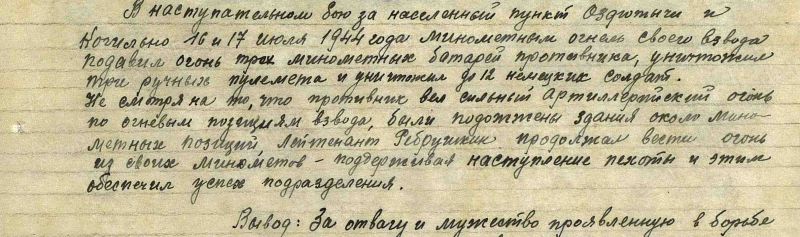 В наступательном бою за населенный пункт Оздютычи и
Могильно 16 и 17 июля 1944 года минометным огнем своего взвода
подавил огонь трех минометных батарей противника, уничтожил
три ручных пулемета и уничтожил до 12 немецких солдат.
Не смотря на то, что противник вел сильный артиллерийский огонь
по огневым позициям взвода, были подожжены здания около мино-
метных позиций, Лейтенант Ребрушкин продолжал вести огонь
из своих минометов - поддерживая наступление пехоты и этим
обеспечил успех подразделения.
Вывод: За отвагу и мужество проявленную в борьбе